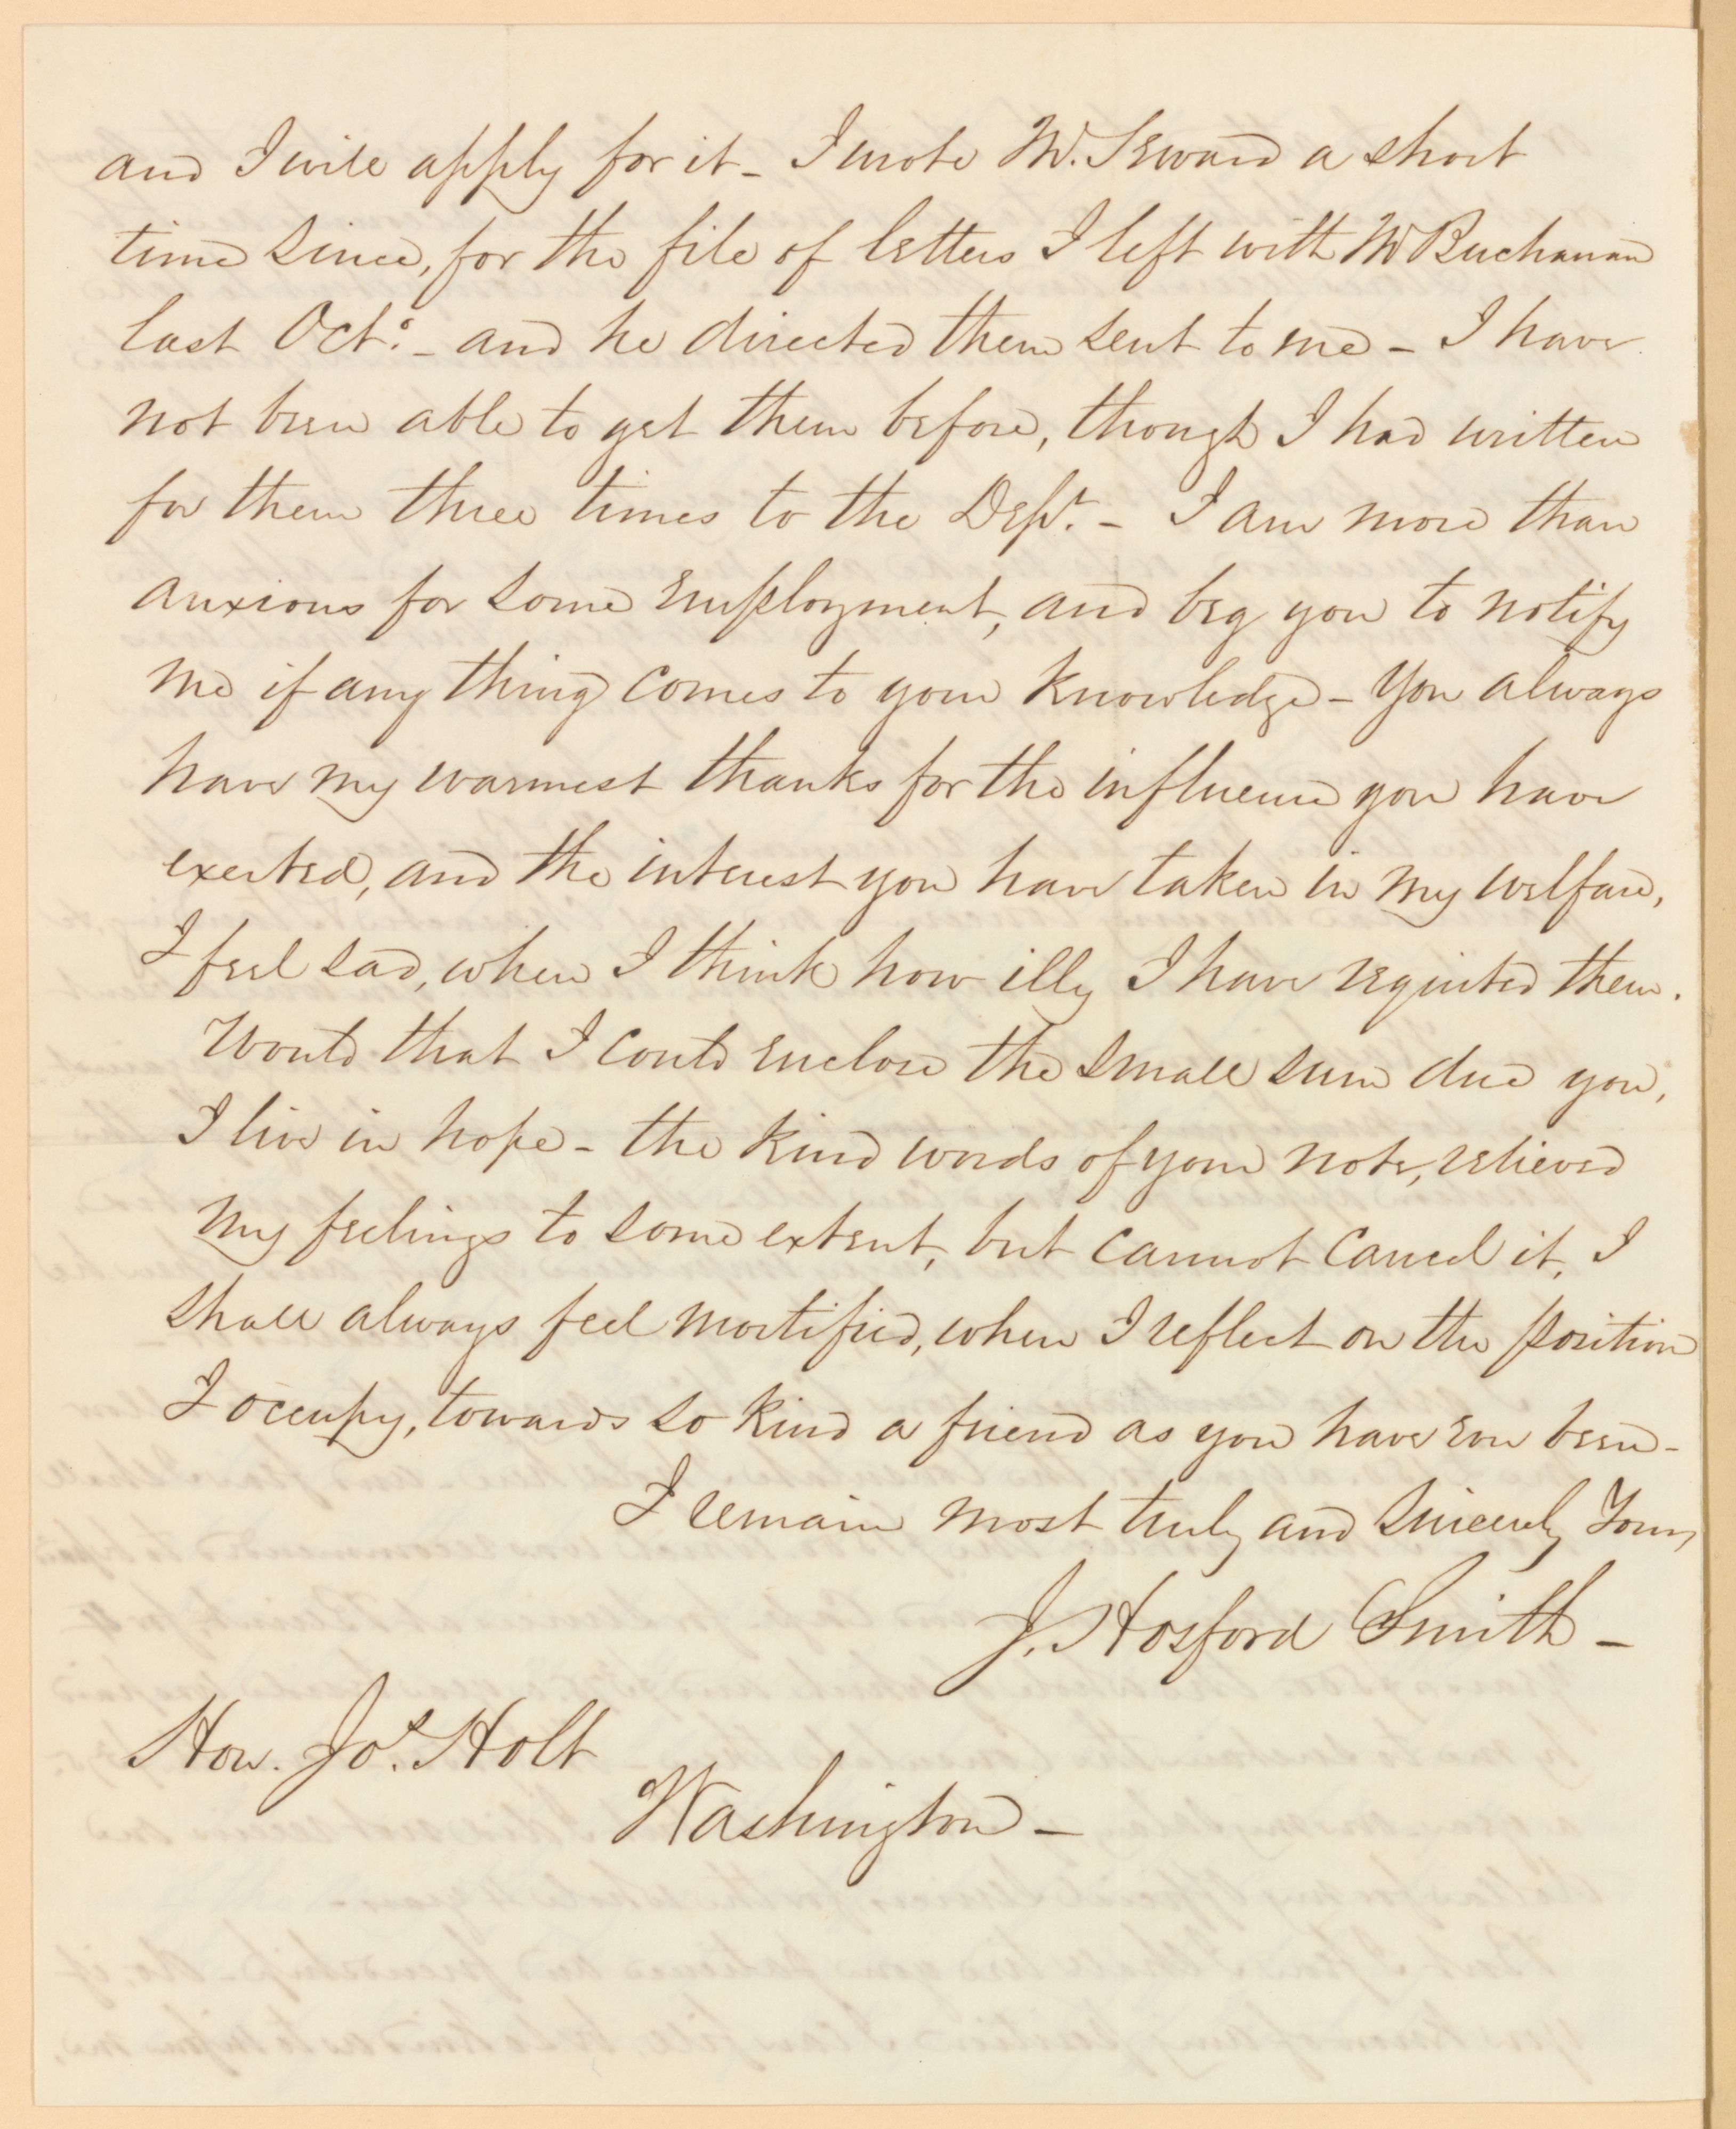 and I will apply for it - I wrote Mr. Seward a short
time since, for the file of letters I left with Mr Buchanan
last Octo. - and he directed them sent to me - I have
not been able to get them before, though I had written
for them three times to the Dept. - I am more than
anxious for some employment, and beg you to notify
me if any thing comes to your knowledge - You always
have my warmest thanks for the influence you have
exerted, and the interest you have taken in my welfare,
I feel sad, when I think how illy I have requited them.
Would that I could enclose the small sum due you,
I live in hope - the kind words of your note, relieved
my feelings to some extent, but cannot cancel it, I
shall always feel mortified, when I reflect on the position
I occupy, towards so kind a friend as you have ever been -
I remain most truly and sincerely Yours
J. Hosford Smith -
Hon. Jos. Holt
Washington -